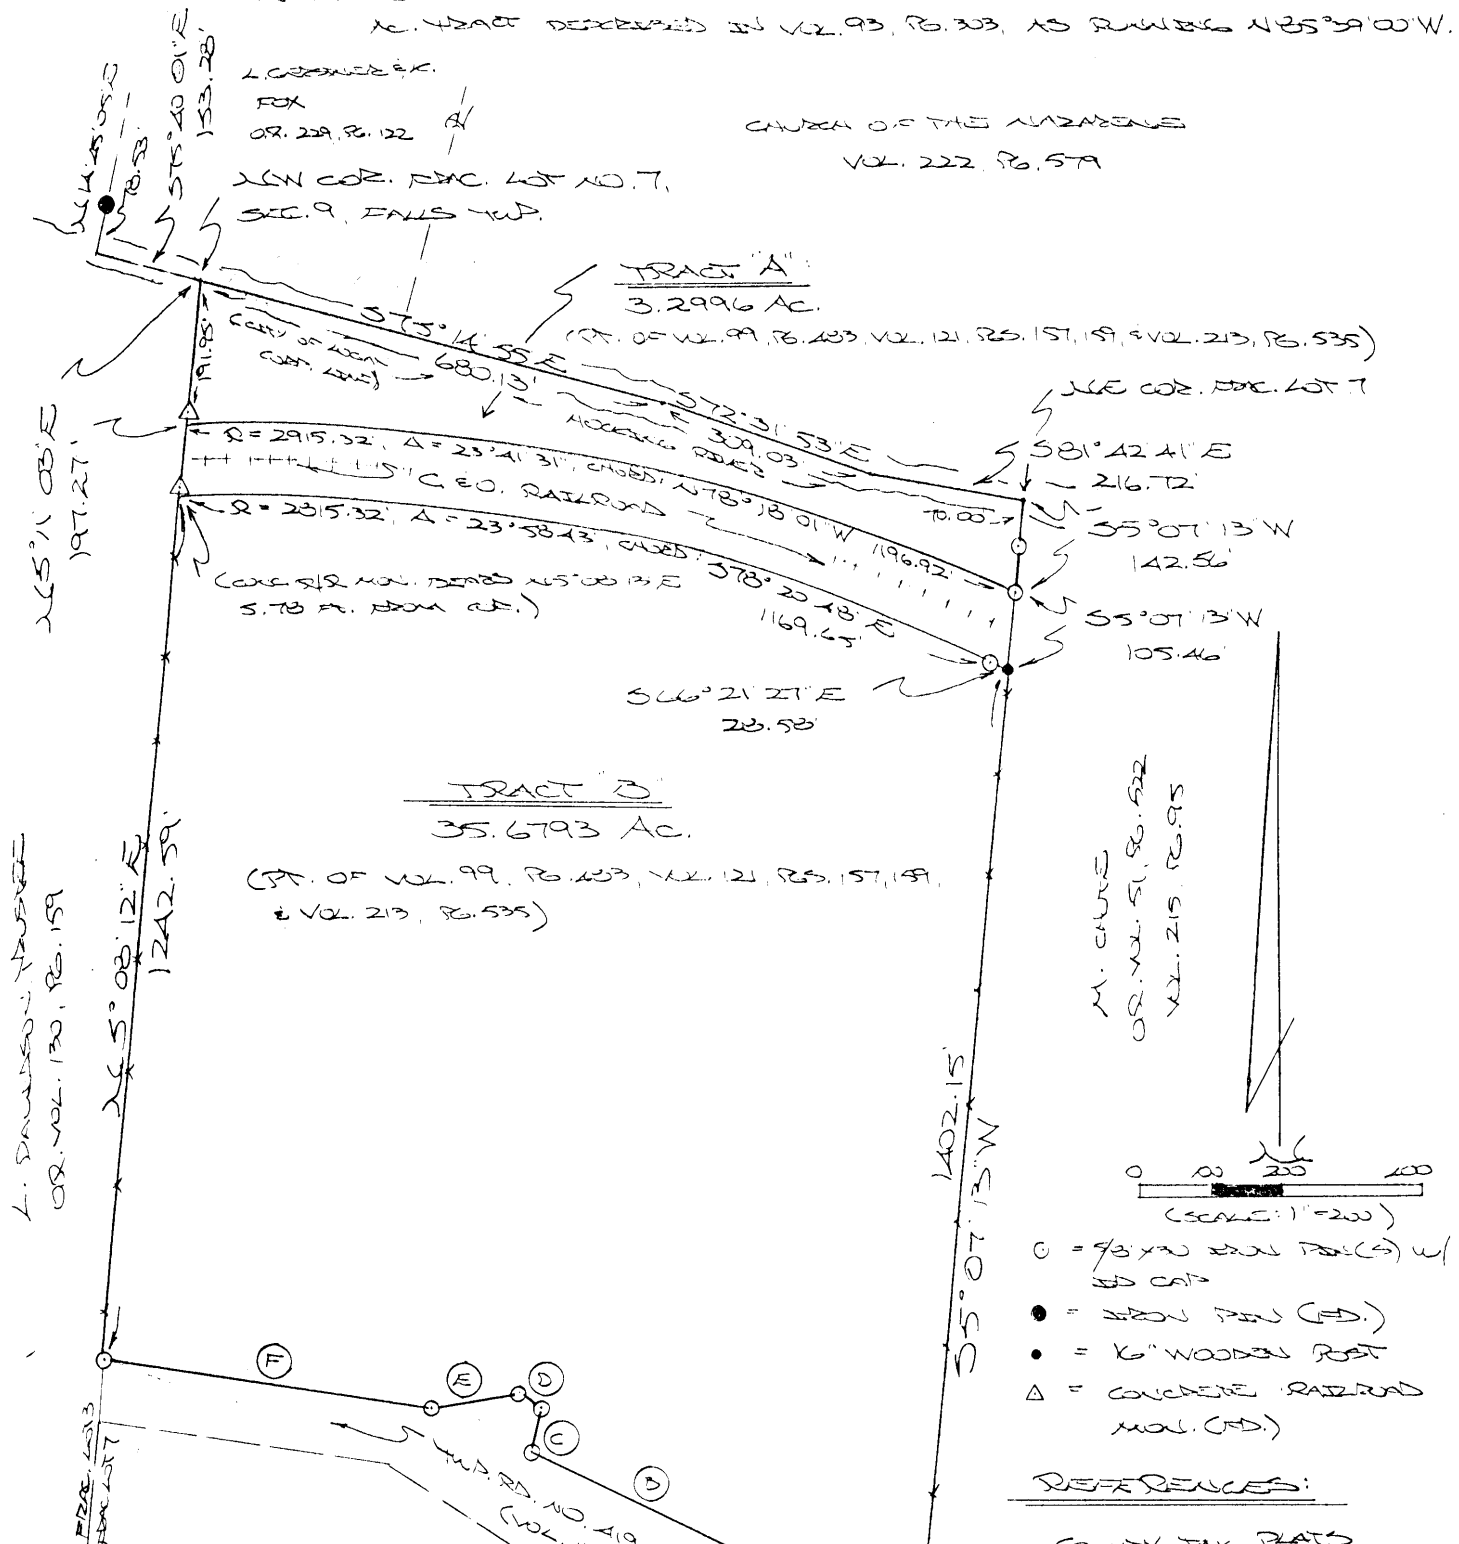 AC. TRACT DESCRIBED IN VOL. 93, PG. 303, AS RUNNING N85°39'00"W.
N14°45'05"E
78.53'
S75°40'01"E
153.28'
L. GERSNER & K.
FOX
O.R. 229, PG. 122
CHURCH OF THE NAZARENE
VOL. 222, PG. 579
NW COR. FRAC. LOT NO. 7,
SEC. 9, FALLS TWP.
TRACT "A"
3.2996 AC.
(PT. OF VOL. 99, PG. 483, VOL. 121, PGS. 157, 159, & VOL. 213, PG. 535)
S75°14'55"E
680.13'
(CITY OF LOGAN
CORP. LINE)
S72°31'53"E
309.03'
HOCKING RIVER
NE COR. FRAC. LOT 7
S81°42'41"E
216.72'
70.00'
S5°07'13"W
142.56'
S5°07'13"W
105.46'
191.95'
N5°11'03"E
197.27'
R = 2915.32', Δ = 23°41'31", CHORD: N78°18'01"W 1196.92'
C. & O. RAILROAD
R = 2815.32', Δ = 23°58'43", CHORD: S78°20'48"E
1169.65'
(CONC. R/R MON. BEARS N5°08'13"E
5.78 FT. FROM C/F.)
S66°21'27"E
28.58'
TRACT "B"
35.6793 AC.
(PT. OF VOL. 99, PG. 483, VOL. 121, PGS. 157, 159,
& VOL. 213, PG. 535)
N5°08'12"E
1242.59'
L. DAVIDSON TRUSTEE
O.R. VOL. 130, PG. 159
M. CHUTE
O.R. VOL. 51, PG. 522
VOL. 215, PG. 95
1402.15'
S5°07'13"W
N
0 100 200 400
(SCALE: 1"=200')
○ = 5/8"X30" IRON PIN(S) W/
ID CAP
● = IRON PIN (FD.)
• = 16" WOODEN POST
△ = CONCRETE RAILROAD
MON. (FD.)
F
E
D
C
B
TWP. RD. NO. 419
(VOL.
FRAC. LOT 13
FRAC. LOT 7
REFERENCES:
COUNTY TAX PLATS